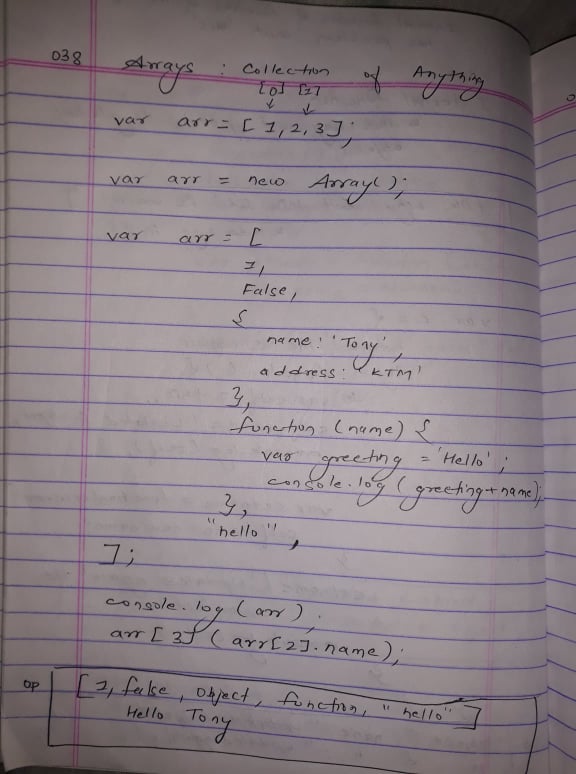 038 Arrays : Collection of Anything
[0] [1]
var arr = [ 1, 2, 3 ];
var arr = new Array();
var arr = [
1,
False,
{
name: 'Tony',
address: 'KTM'
},
function (name) {
var greeting = 'Hello';
console.log (greeting + name);
},
"hello",
];
console.log (arr);
arr [ 3 ] ( arr[2].name);
op [ 1, false, object, function, "hello" ]
Hello Tony